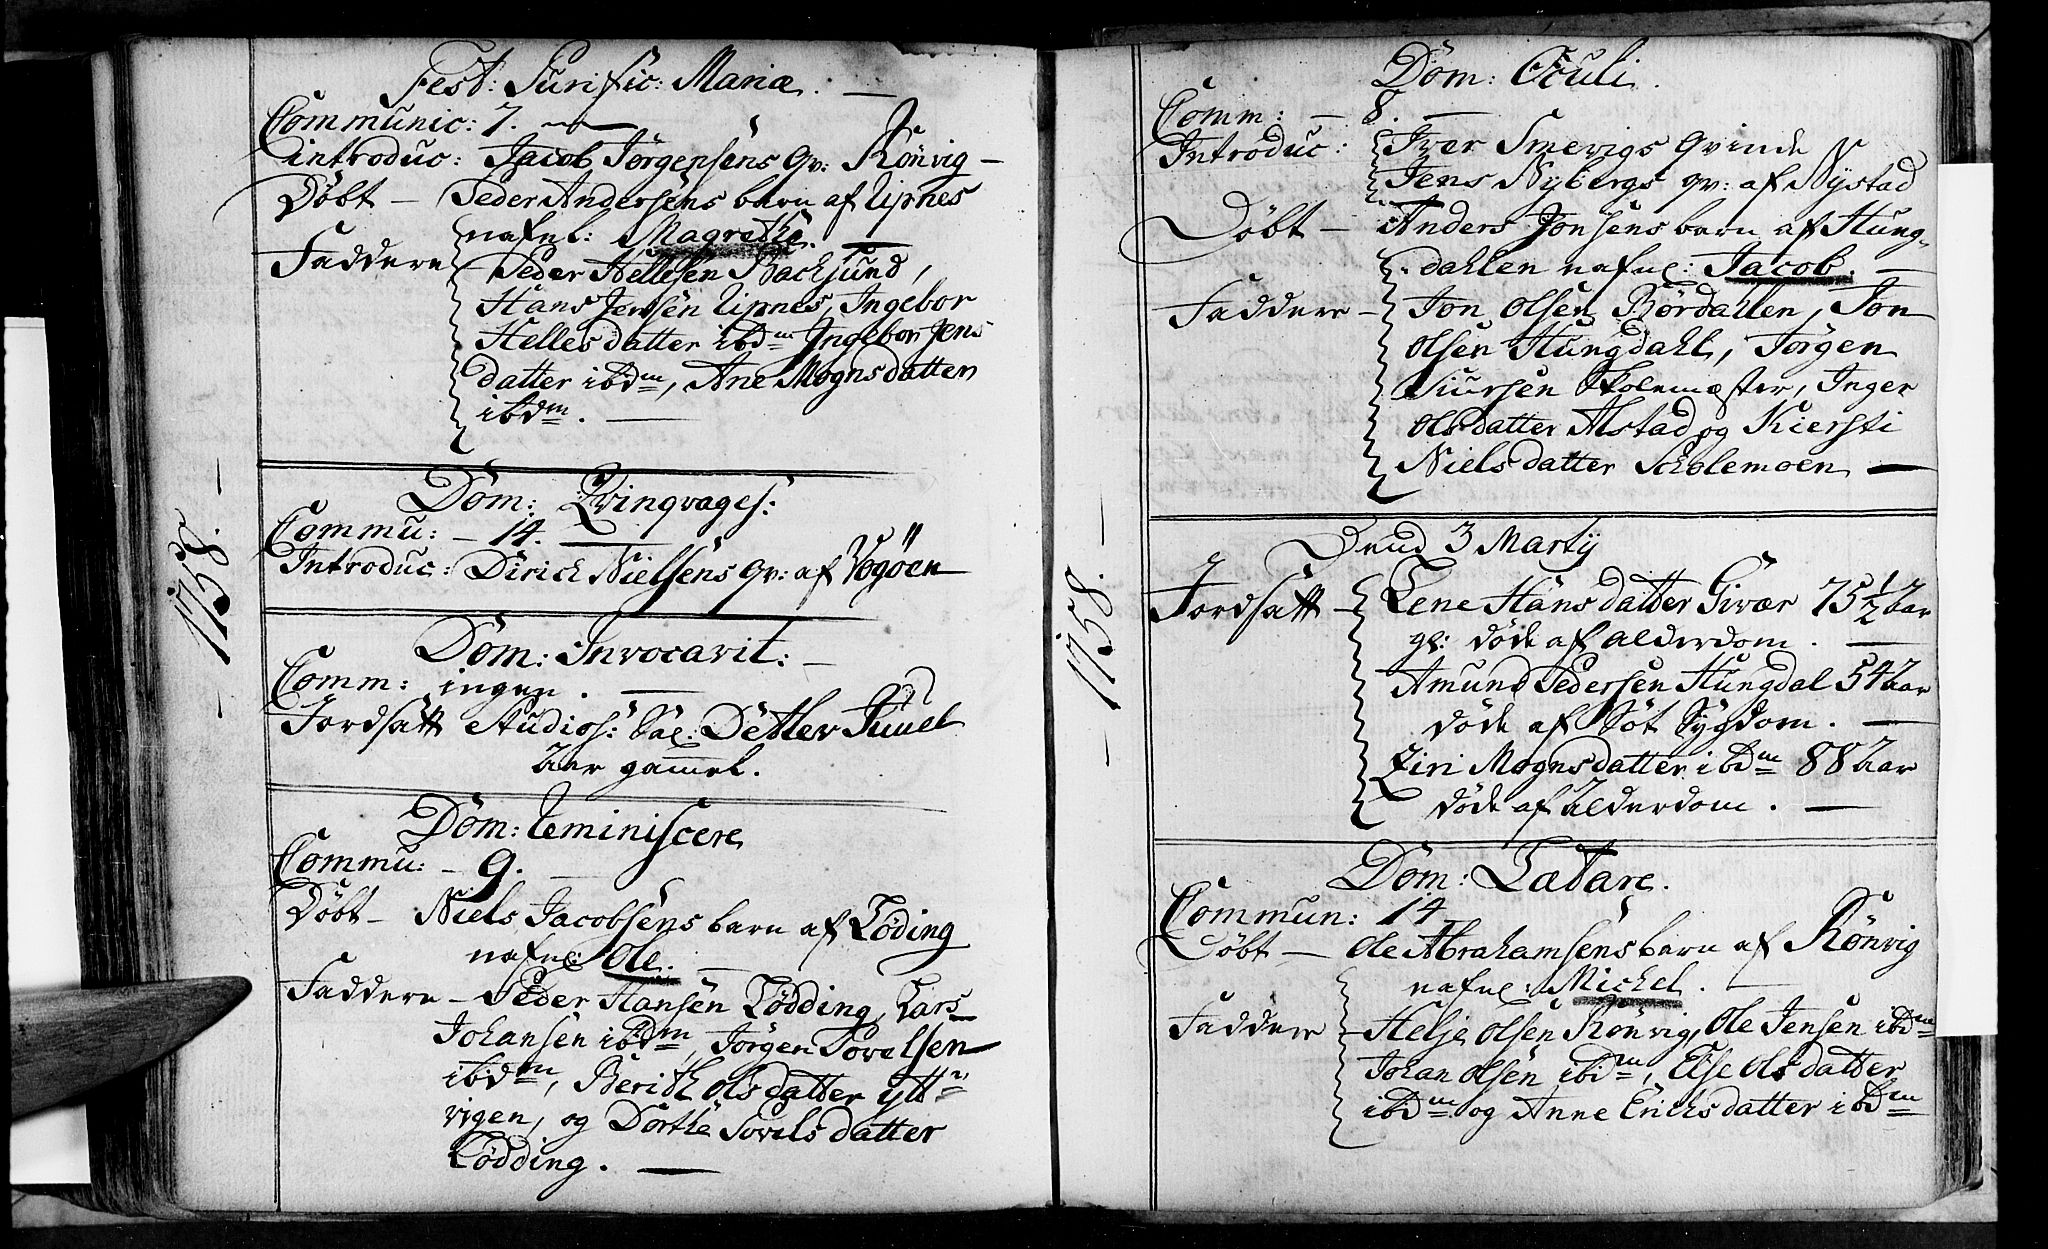 Fest: Purific: Mariæ. —
Communic: 7. —
introduc: Jacob Jørgensens qv: Rönvig —
Döbt — Peder Andersens barn af Lipnes
nafnl: Magrethe. —
Faddere Peder Hellesen Backsund,
Hans Jensen Lipnes, Ingebor
Helles datter ibdm Ingebor Jens
datter ibdm, Ane Mognsdatter
ibdm. —
— 1758. —
Dom: Qvinqvages:
Commu: — 14. —
Introduc: Dirich Nielsens qv: af Vogöen
Dom: Invocavit: —
Comm: ingen. —
Jordsatt Studios: Sal: Detlev Juuel
Aar gamel.
Dom: Reminiscere
Commu: — 9. —
Döbt — Niels Jacobsens barn af Löding
nafnl: Ole. —
Faddere — Peder Hansen Lödding, Lars
Johansen ibdm, Jörgen Povelsen
ibdm, Berith Olsdatter ytt-
vigen, og Dorthe Povelsdatter
Lödding. —
Dom: Oculi.
Comm: — 8. —
Introduc: Iver Smevigs qvinde
Jens Nybergs qv: af Nystad
Döbt — Anders Jonsens barn af Hung-
dahlen nafnl: Jacob. —
Faddere — Jon Olsen Rördahlen, Jon
Olsen Hungdahl, Jörgen
Siursen Skolemæster, Inger
Olsdatter Alstad og Kiersti
Nielsdatter Scholemoen —
— 1758. —
Dend 3 Marty
Jordsatt — Lene Hansdatter Givær 75 1/2 Aar
gl: döde af alderdom. —
Amund Pedersen Hungdal 54 Aar
döde af Sot Sygdom. —
Siri Mognsdatter ibdm 88 Aar
döde af Alderdom. —
Dom: Lætare.
Commun: 14
Döbt — Ole Abrahamsens barn af Rönvig
nafnl: Michel. —
Faddere — Helje Olsen Rönvig, Ole Jensen ibdm
Johan Olsen ibidm, Else Olsdatter
ibdm og Anne Erichsdatter ibdm